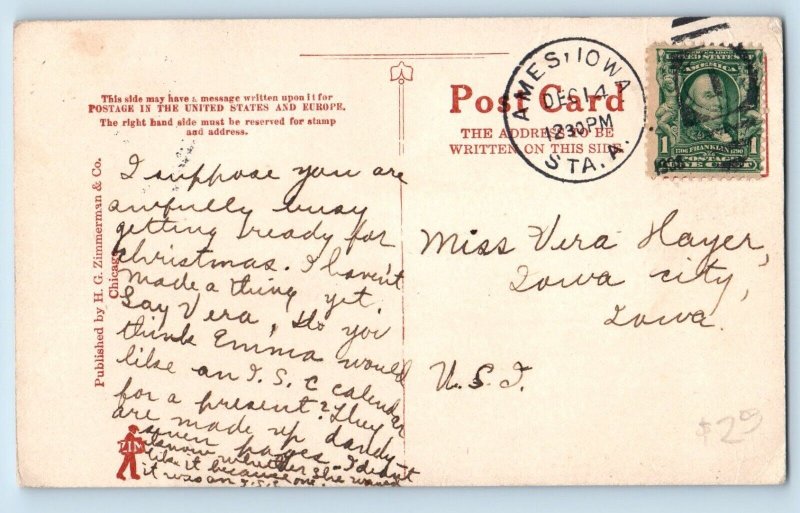 This side may have a message written upon it for
POSTAGE IN THE UNITED STATES AND EUROPE.
The right hand side must be reserved for stamp
and address.
Post Card
THE ADDRESS TO BE
WRITTEN ON THIS SIDE
AMES, IOWA
DEC 14
1230PM
STA. A.
UNITED STATES OF
AMERICA
1 1
1706 FRANKLIN 1790
POSTAGE
ONE CENT
Published by H. G. Zimmerman & Co.
Chicago
I suppose you are
awfully busy
getting ready for
christmas. I haven't
made a thing yet.
Say Vera, Do you
think Emma would
like an I. S. C calendar
for a present? They
are made up dandy—
seven pages. I didn't
know whether she would
like it because
it was an I.S.C one.
ZIM
Miss Vera Hayer,
Iowa city,
Iowa.
U.S.I.
$29